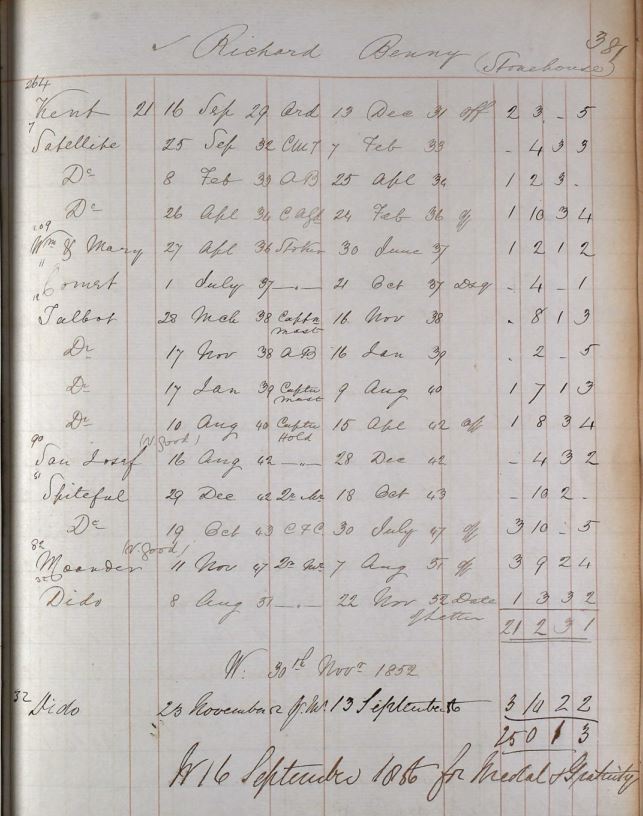 ✓ Richard Benny (Stonehouse) 381
264
Kent 21 16 Sep 29 Ord 13 Dec 31 off 2 3 - 5
7
Satellite 25 Sep 32 7 Feb 33 - 4 3 3
Do 8 Feb 33 AB 25 Apl 34 1 2 3 .
Do 26 Apl 34 24 Feb 36 off 1 10 3 4
109
Wm & Mary 27 Apl 36 Stoker 30 June 37 1 2 1 2
"
Comet 1 July 37 -"- 21 Oct 37 Dsq - 4 - 1
Talbot 28 Mch 38 Captn mast 16 Nov 38 . 8 1 3
Do 17 Nov 38 AB 16 Jan 39 . 2 - 5
Do 17 Jan 39 Captn mast 9 Aug 40 1 7 1 3
Do 10 Aug 40 Captn Hold 15 Apl 42 off 1 8 3 4
90 (V. good)
San Josef 16 Aug 42 -"- 28 Dec 42 - 4 3 2
Spiteful 29 Dec 42 18 Oct 43 - 10 2 .
Do 19 Oct 43 30 July 47 off 3 10 - 5
82 (V. good)
Meander 11 Nov 47 7 Aug 51 off 3 9 2 4
Dido 8 Aug 51 -"- 22 Nov 52 Date of letter 1 3 3 2
21 2 3 1
W. 30th Novr 1852
32
Dido 23 November 13 September 56 3 10 2 2
25 0 1 3
W 16 September 1856 for Medal & Gratuity